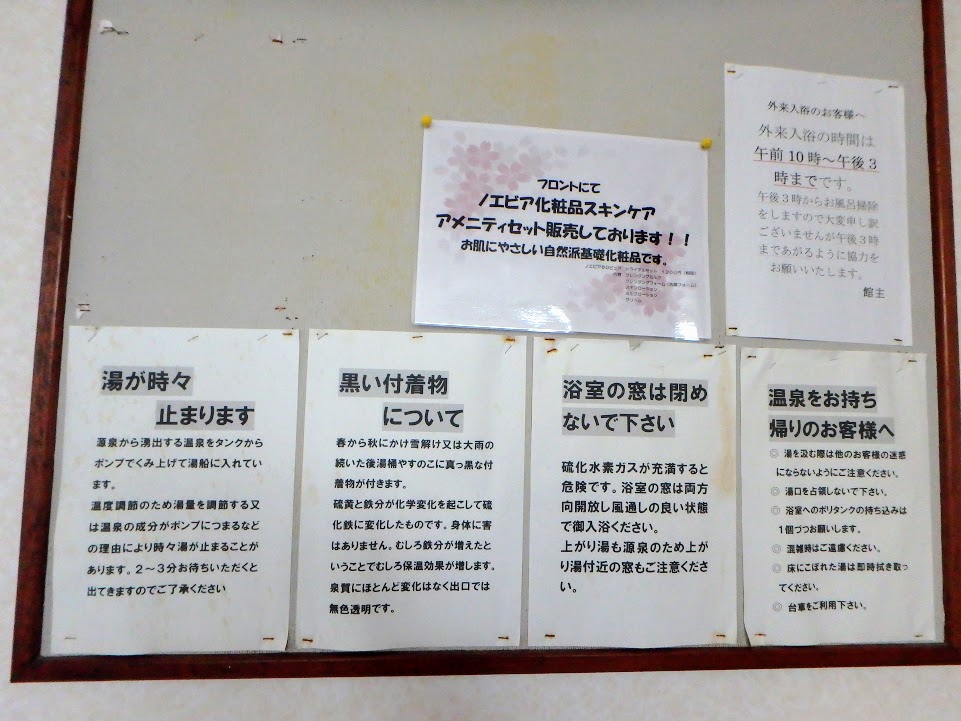 外来入浴のお客様へ
外来入浴の時間は
午前10時～午後3
時までです。
午後3時からお風呂掃除
をしますので大変申し訳
ございませんが午後3時
まであがるように協力を
お願いいたします。
館主
フロントにて
ノエビア化粧品スキンケア
アメニティセット販売しております！！
お肌にやさしい自然派基礎化粧品です。
湯が時々
止まります
源泉から湧出する温泉をタンクから
ポンプでくみ上げて湯船に入れてい
ます。
温度調節のため湯量を調節する又
は温泉の成分がポンプにつまるなど
の理由により時々湯が止まることが
あります。2～3分お待ちいただくと
出てきますのでご了承ください
黒い付着物
について
春から秋にかけ雪解け又は大雨の
続いた後湯桶やすのこに真っ黒な付
着物が付きます。
硫黄と鉄分が化学変化を起こして硫
化鉄に変化したものです。身体に害
はありません。むしろ鉄分が増えたと
いうことでむしろ保温効果が増します。
泉質にほとんど変化はなく出口では
無色透明です。
浴室の窓は閉め
ないで下さい
硫化水素ガスが充満すると
危険です。浴室の窓は両方
向開放し風通しの良い状態
で御入浴ください。
上がり湯も源泉のため上が
り湯付近の窓もご注意くださ
い。
温泉をお持ち
帰りのお客様へ
◎ 湯を汲む際は他のお客様の迷惑
にならないようにご注意ください。
◎ 湯口を占領しないで下さい。
◎ 浴室へのポリタンクの持ち込みは
1個づつお願いします。
◎ 混雑時はご遠慮ください。
◎ 床にこぼれた湯は即時拭き取っ
てください。
◎ 台車をご利用下さい。